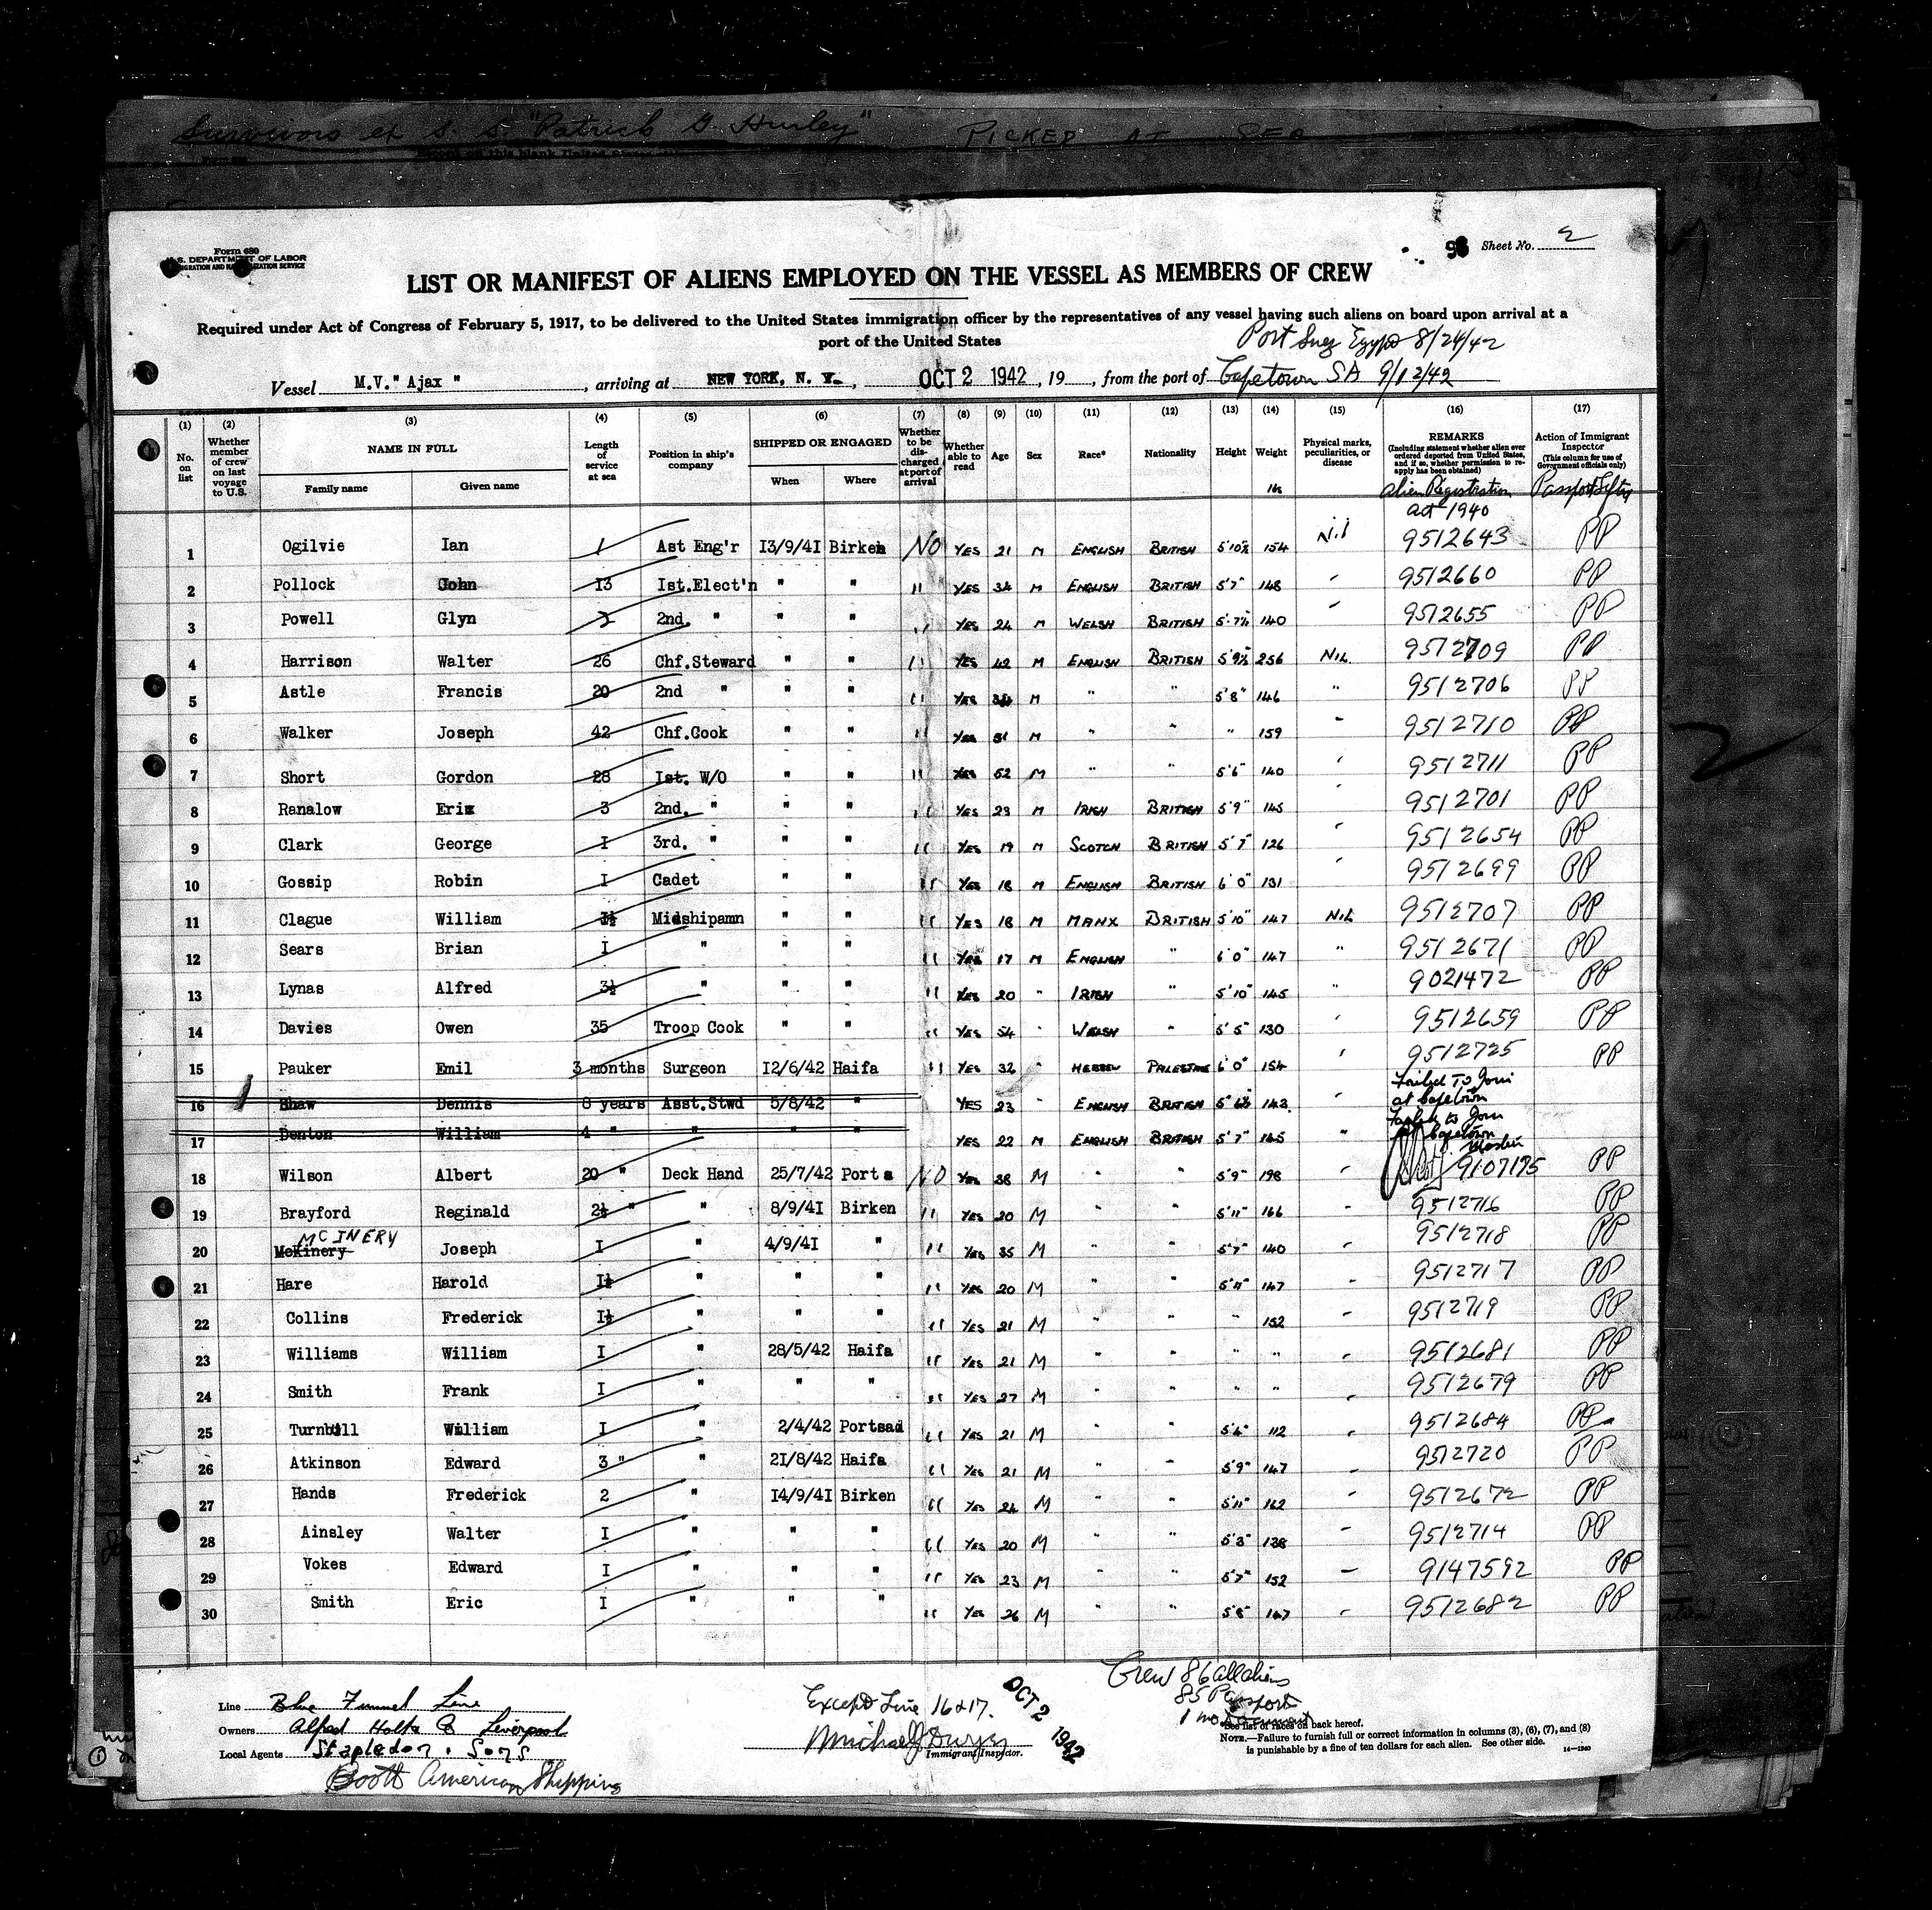 Survivors ex S. S. "Patrick G. Hurley" PICKED AT SEA
Form 680
U.S. DEPARTMENT OF LABOR
IMMIGRATION AND NATURALIZATION SERVICE
Sheet No. 2
LIST OR MANIFEST OF ALIENS EMPLOYED ON THE VESSEL AS MEMBERS OF CREW
Required under Act of Congress of February 5, 1917, to be delivered to the United States immigration officer by the representatives of any vessel having such aliens on board upon arrival at a
port of the United States
Port Suez Egypt 8/24/42
Vessel M.V." Ajax ", arriving at NEW YORK, N. Y., OCT 2 1942, 19, from the port of Capetown SA 9/12/42
(1) (2) (3) (4) (5) (6) (7) (8) (9) (10) (11) (12) (13) (14) (15) (16) (17)
No. on list
Whether member of crew on last voyage to U.S.
NAME IN FULL
Family name
Given name
Length of service at sea
Position in ship's company
SHIPPED OR ENGAGED
When
Where
Whether to be discharged at port of arrival
Whether able to read
Age
Sex
Race*
Nationality
Height
Weight
lbs
Physical marks, peculiarities, or disease
REMARKS
(Including statement whether alien ever ordered deported from United States, and if so, whether permission to reapply has been obtained)
Alien Registration
act 1940
Action of Immigrant Inspector
(This column for use of Government officials only)
1 Ogilvie Ian 1 Ast Eng'r 13/9/41 Birken NO YES 21 M ENGLISH BRITISH 5'10½ 154 Nil 9512643 PP
2 Pollock John 13 Ist.Elect'n " " " YES 34 M ENGLISH BRITISH 5'7" 148 9512660 PP
3 Powell Glyn 2nd. " " " " YES 24 M WELSH BRITISH 5'7½ 140 9512655 PP
4 Harrison Walter 26 Chf.Steward " " " YES 42 M ENGLISH BRITISH 5'9½ 256 NIL 9512709 PP
5 Astle Francis 20 2nd " " " " YES M " " 5'8" 146 " 9512706 PP
6 Walker Joseph 42 Chf.Cook " " " YES M " " " 159 9512710 PP
7 Short Gordon 28 Ist. W/O " " " YES 52 M " " 5'6" 140 9512711 PP
8 Ranalow Eric 3 2nd. " " " " YES 23 M IRISH BRITISH 5'9" 145 9512701 PP
9 Clark George I 3rd. " " " " YES 19 M SCOTCH BRITISH 5'7" 126 9512654 PP
10 Gossip Robin I Cadet " " " YES 18 M ENGLISH BRITISH 6'0" 131 9512699 PP
11 Clague William Midshipamn " " " YES 18 M MANX BRITISH 5'10" 147 NIL 9512707 PP
12 Sears Brian I " " " " YES 17 M ENGLISH " 6'0" 147 " 9512671 PP
13 Lynas Alfred 3½ " " " " YES 20 " IRISH " 5'10" 145 " 9021472 PP
14 Davies Owen 35 Troop Cook " " " YES 54 " WELSH " 5'5" 130 9512659 PP
15 Pauker Emil 3 months Surgeon 12/6/42 Haifa " YES 32 " HEBREW PALESTINE 6'0" 154 9512725 PP
16 Shaw Dennis 8 years Asst.Stwd 5/8/42 " YES 23 " ENGLISH BRITISH 143 Failed To Join at Capetown
17 Denton William 4 " " " " YES 22 M ENGLISH BRITISH 5'7" 145 " Failed to Join Capetown
Master
18 Wilson Albert 20 " Deck Hand 25/7/42 Port s NO YES 38 M " " 5'9" 198 9107175 PP
19 Brayford Reginald 2½ " " 8/9/41 Birken " YES 20 M " " 5'11" 166 9512716 PP
MCINERY
20 McKinery Joseph I " 4/9/41 " " YES 35 M " " 5'7" 140 9512718 PP
21 Hare Harold I½ " " " " YES 20 M " " 5'11" 147 9512717 PP
22 Collins Frederick I½ " " " " YES 21 M " " " 152 9512719 PP
23 Williams William I " 28/5/42 Haifa " YES 21 M " " " " 9512681 PP
24 Smith Frank I " " " " YES 27 M " " " " 9512679 PP
25 Turnbull William I " 2/4/42 Portsad " YES 21 M " " 112 9512684 PP
26 Atkinson Edward 3 " " 21/8/42 Haifa " YES 21 M " " 5'9" 147 9512720 PP
27 Hands Frederick 2 " 14/9/41 Birken " YES 24 M " " 5'11" 162 9512672 PP
28 Ainsley Walter I " " " " YES 20 M " " 5'3" 138 9512714 PP
29 Vokes Edward I " " " " YES 23 M " " 5'7" 152 9147592 PP
30 Smith Eric I " " " " YES 26 M " " 5'8" 147 9512682 PP
Line Blue Funnel Line
Owners Alfred Holts & Liverpool
Local Agents Stapledon. Sons
Booth American Shipping
Except Line 16 & 17.
Immigrant Inspector.
OCT 2 1942
Crew 86 all aliens
85 Passports
1 no Document
*See list of races on back hereof.
NOTE.—Failure to furnish full or correct information in columns (3), (6), (7), and (8)
is punishable by a fine of ten dollars for each alien. See other side.
14—1240